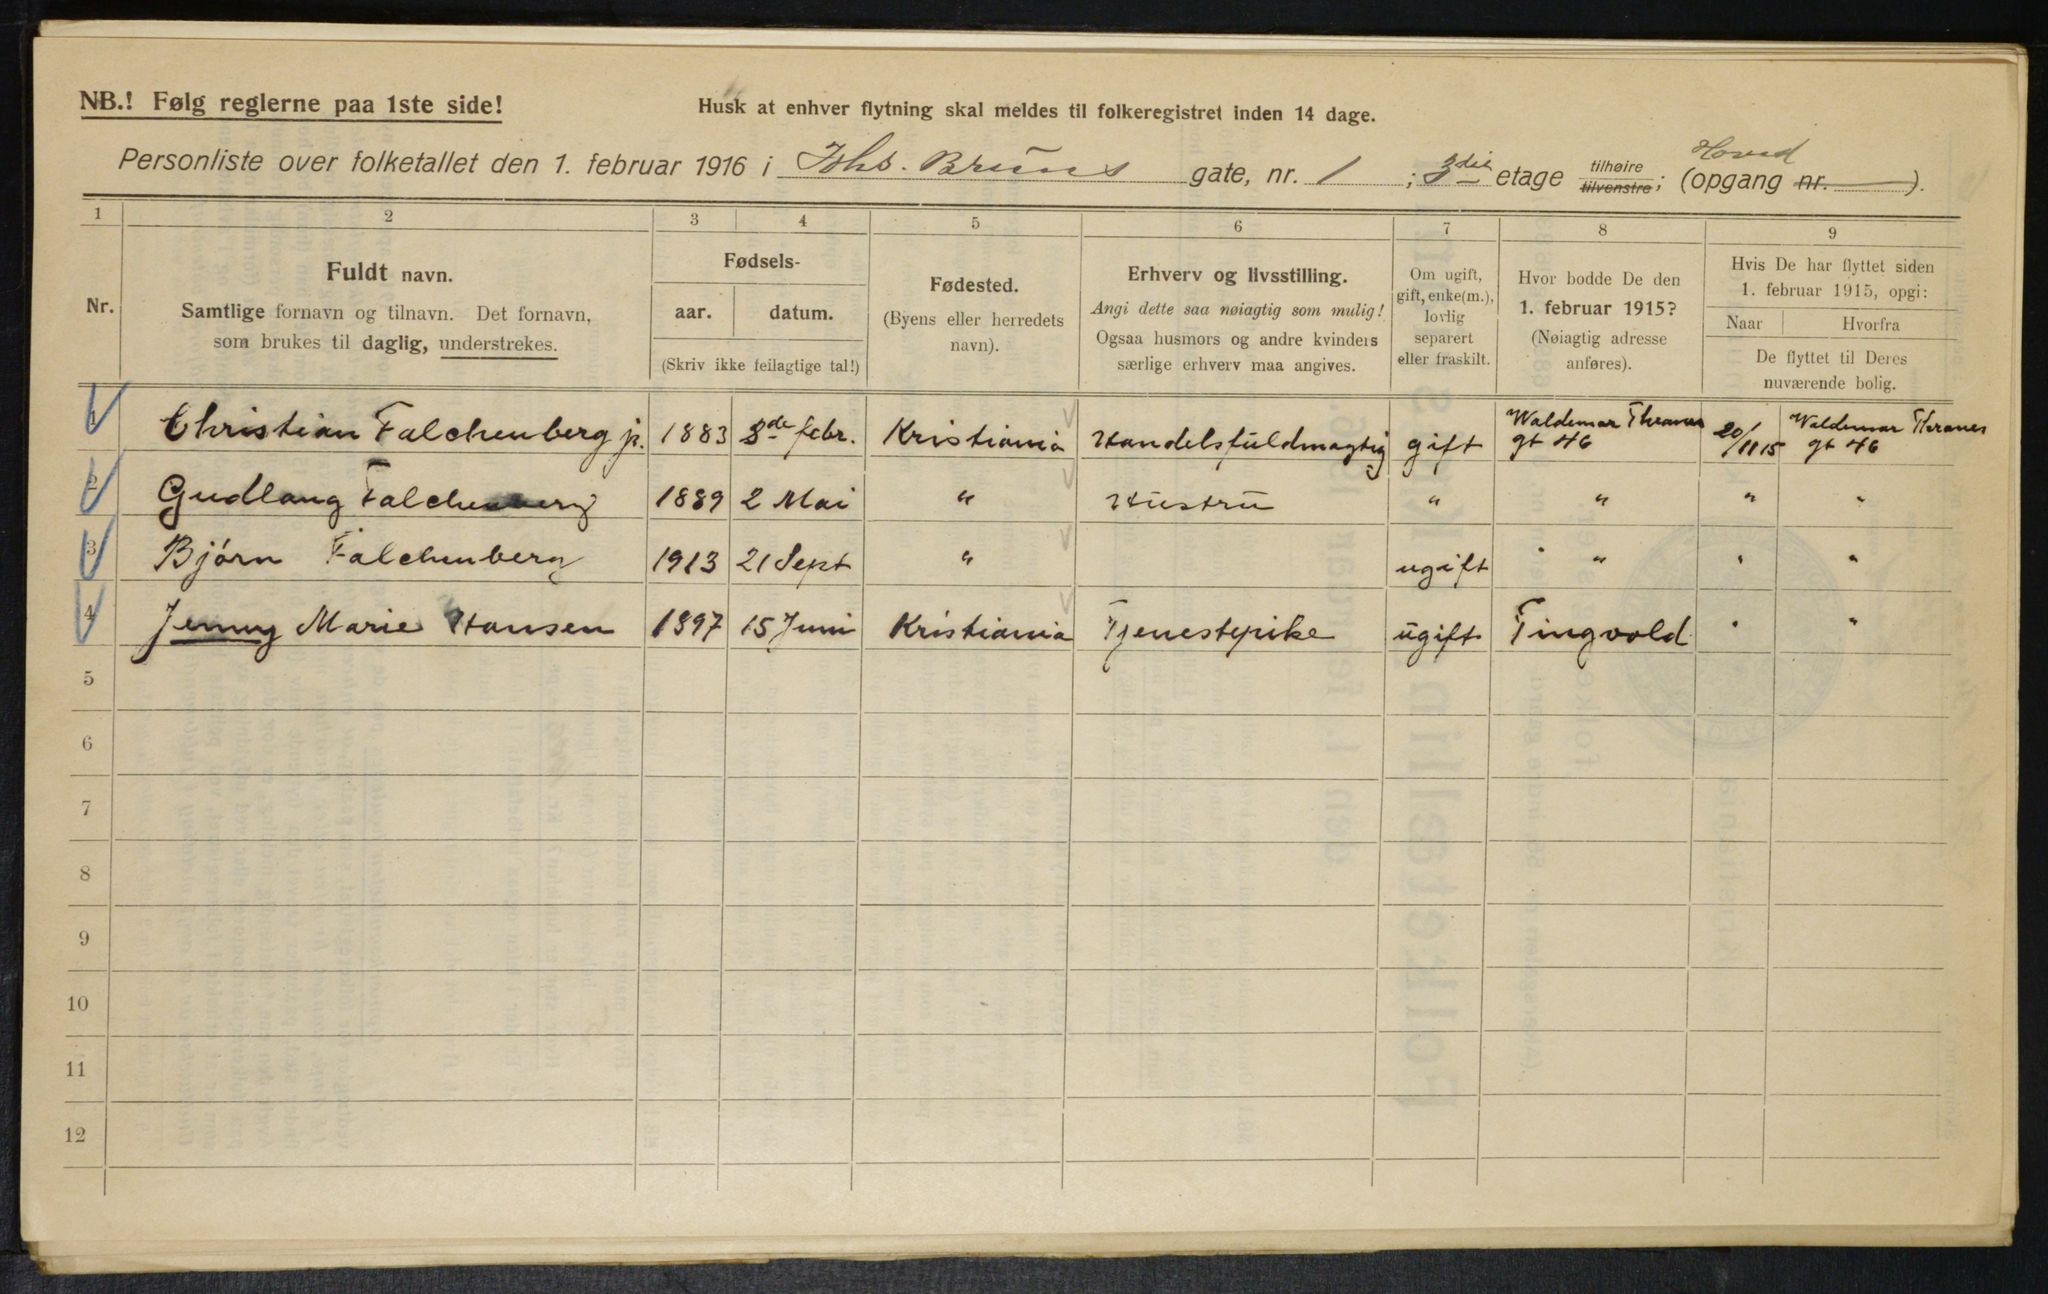 NB.! Følg reglerne paa 1ste side!
Husk at enhver flytning skal meldes til folkeregistret inden 14 dage.
Personliste over folketallet den 1. februar 1916 i Ths. Bruns gate, nr. 1 ; 3die etage tilhøire tilvenstre; Hoved (opgang nr. ).
1 2 3 4 5 6 7 8 9
Nr.
Fuldt navn.
Samtlige fornavn og tilnavn. Det fornavn,
som brukes til daglig, understrekes.
Fødsels-
aar. datum.
(Skriv ikke feilagtige tal!)
Fødested.
(Byens eller herredets
navn).
Erhverv og livsstilling.
Angi dette saa nøiagtig som mulig!
Ogsaa husmors og andre kvinders
særlige erhverv maa angives.
Om ugift,
gift, enke(m.),
lovlig
separert
eller fraskilt.
Hvor bodde De den
1. februar 1915?
(Nøiagtig adresse
anføres).
Hvis De har flyttet siden
1. februar 1915, opgi:
Naar Hvorfra
De flyttet til Deres
nuværende bolig.
1 Christian Falchenberg jr. 1883 8de febr. Kristiania Handelsfuldmagtig gift Waldemar Thranes gt 46 20/11 15 Waldemar Thranes gt 46
2 Gudlaug Falchenberg 1889 2 Mai " Hustru " " " "
3 Bjørn Falchenberg 1913 21 Sept " ugift " " "
4 Jenny Marie Hansen 1897 15 Juni Kristiania Tjenestepike ugift Tingvold " "
5
6
7
8
9
10
11
12